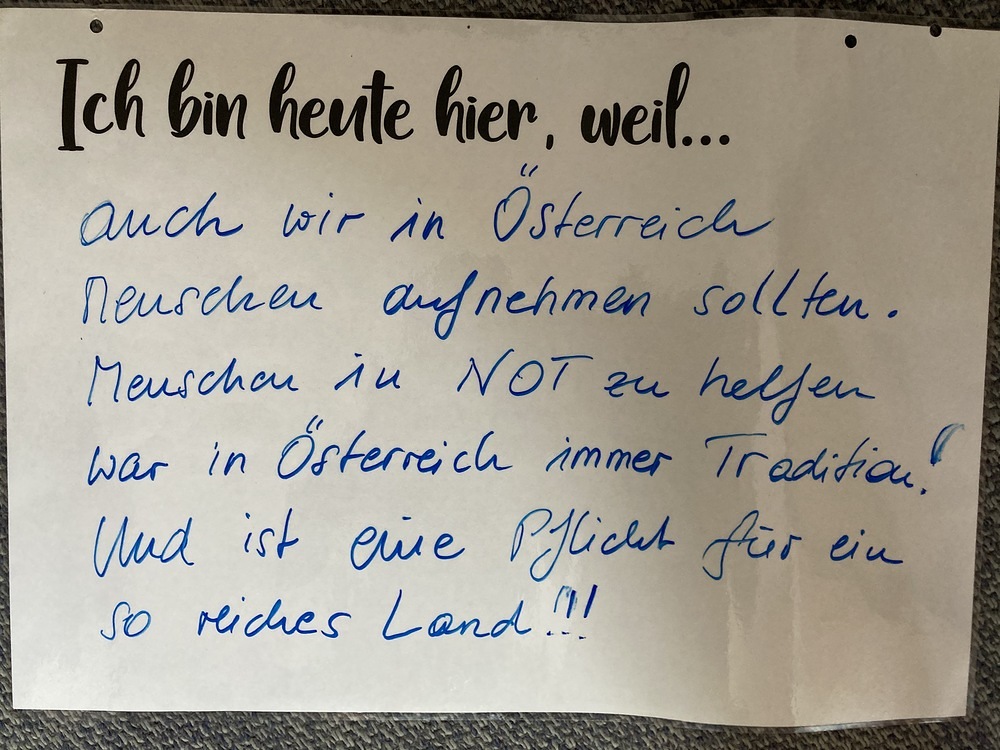 Ich bin heute hier, weil...
auch wir in Österreich
Menschen aufnehmen sollten.
Menschen in NOT zu helfen
war in Österreich immer Tradition!
Und ist eine Pflicht für ein
so reiches Land!!!